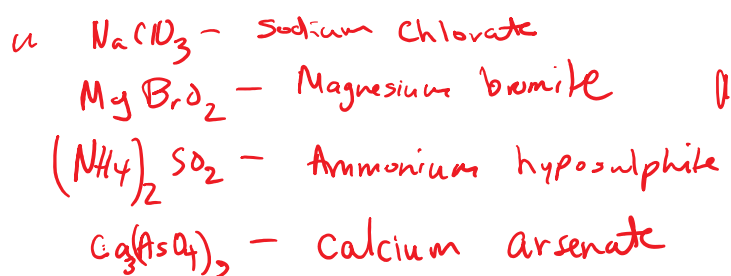 NaClO₃ - Sodium Chlorate
MgBrO₂ - Magnesium bromite
(NH₄)₂ SO₂ - Ammonium hyposulphite
Ca₃(AsO₄)₂ - Calcium arsenate